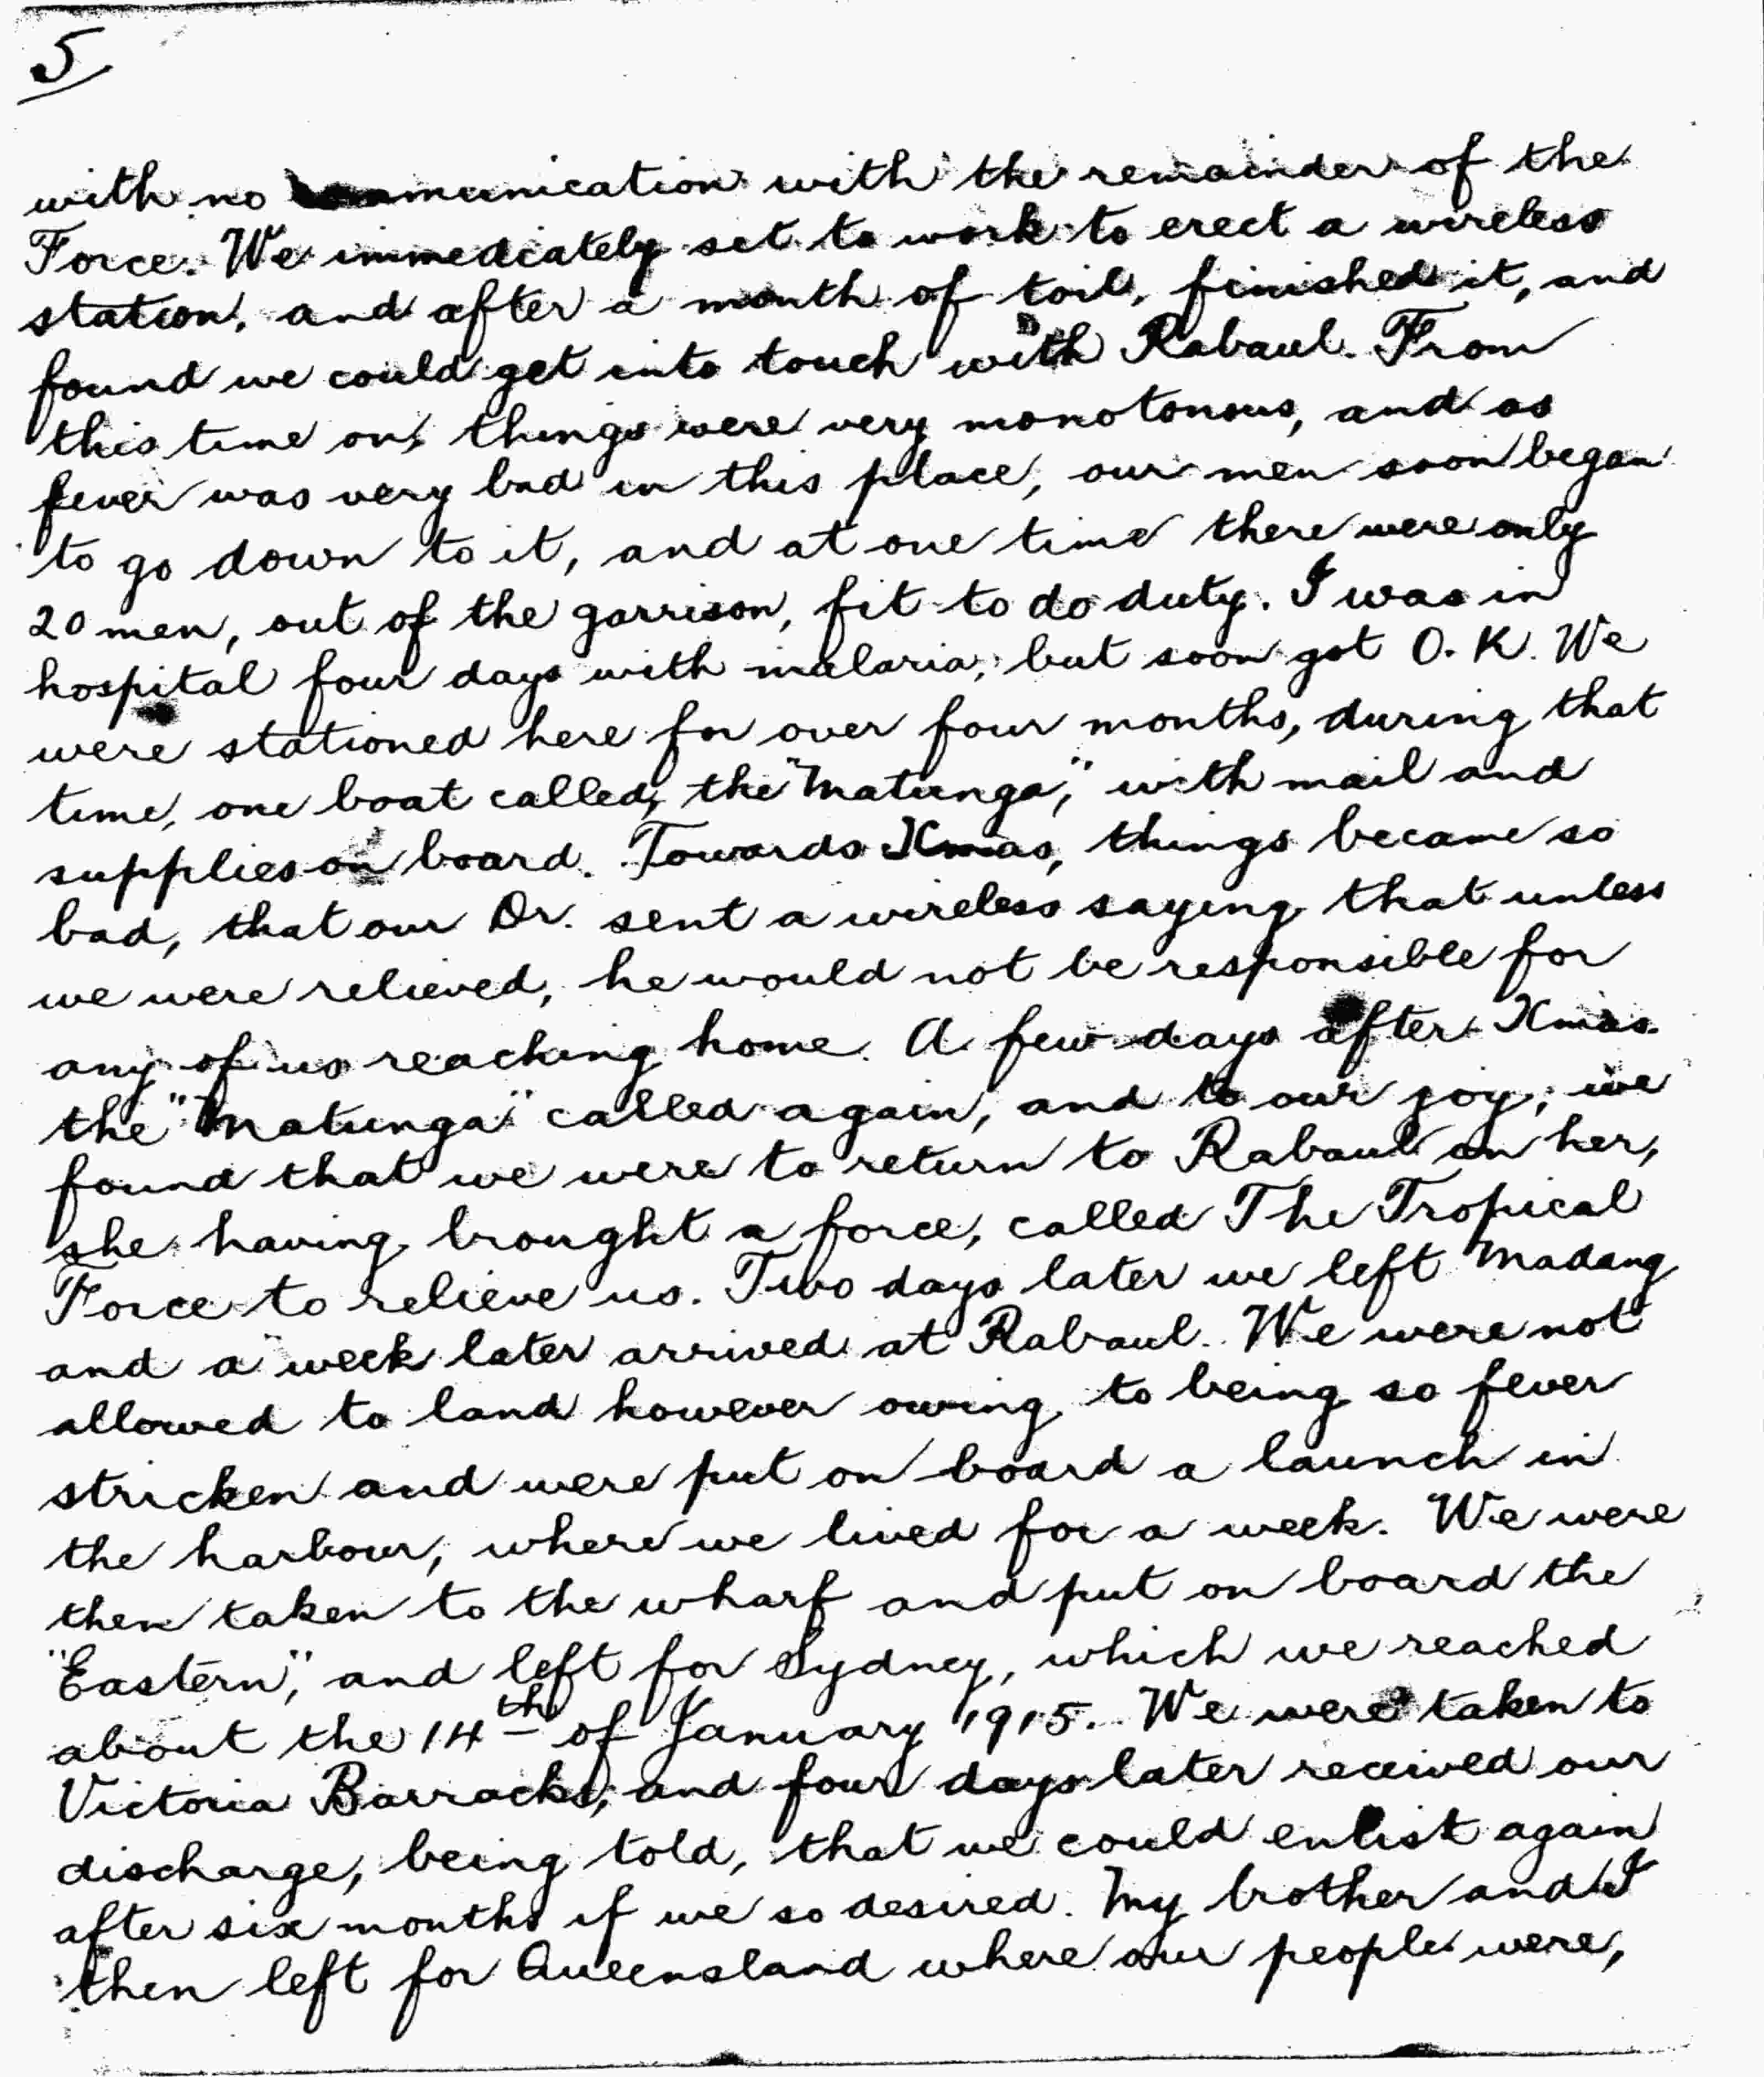 5
with no communication with the remainder of the
Force. We immediately set to work to erect a wireless
station, and after a month of toil, finished it, and
found we could get into touch with Rabaul. From
this time on, things were very monotonous, and as
fever was very bad in this place, our men soon began
to go down to it, and at one time there were only
20 men, out of the garrison, fit to do duty. I was in
hospital four days with malaria, but soon got O.K. We
were stationed here for over four months, during that
time, one boat called, the "Matunga", with mail and
supplies on board. Towards Xmas, things became so
bad, that our Dr. sent a wireless saying that unless
we were relieved, he would not be responsible for
any of us reaching home. A few days after Xmas
the "Matunga" called again, and to our joy, we
found that we were to return to Rabaul on her,
she having brought a force, called The Tropical
Force to relieve us. Two days later we left Madang
and a week later arrived at Rabaul. We were not
allowed to land however owing to being so fever
stricken and were put on board a launch in
the harbour, where we lived for a week. We were
then taken to the wharf and put on board the
"Eastern", and left for Sydney, which we reached
about the 14th of January 1915. We were taken to
Victoria Barracks, and four days later received our
discharge, being told, that we could enlist again
after six months if we so desired. My brother and I
then left for Queensland where our people were,